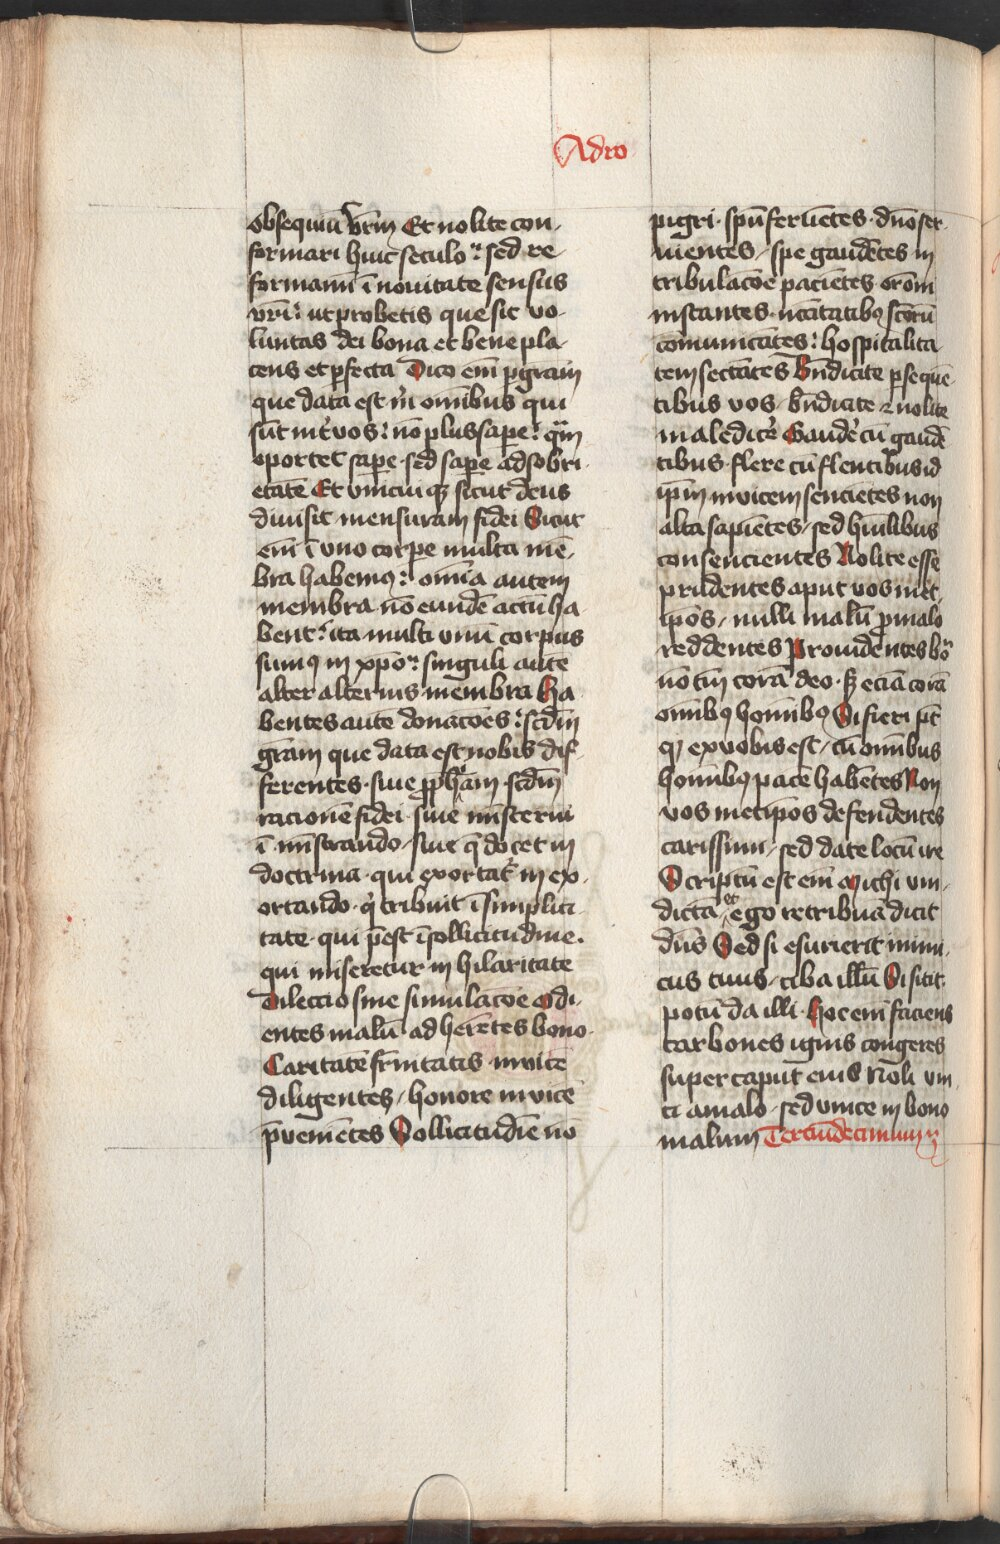 Ad ro
obsequiū vr̄m Et nolite con-
formari huic seculo sed re-
formami ī nouitate sensus
vr̄i ut probetis que sit vo-
luntas dei bona et bene pla-
cens et perfecta Dico em̄ p gr̄am
que data est m̄ om̄ibus qui
sūt int̄ vos no̅ plus sape qm̄
oportet sape sed sape ad sobri-
etatē Et vnicuiqꝫ sicut deus
diuisit mensuram fidei Sicut
em̄ ī vno corpe multa mē-
bra habemꝰ om̄ia autem
membra nō eundē actū ha-
bent ita multi vnū corpus
sumꝰ in xp̄o singuli autē
alter alterius membra Ha-
bentes autē donac̄oes scd̄m
gr̄am que data est nobis dif-
ferentes siue ꝓph̄am scd̄m
racionē fidei siue mīsteriū
ī mīstrando siue q̄ docet in
doctrina qui exortat̄ in ex-
ortando qͥ tribuit ī simplici-
tate qui p̄est ī sollicitudine
qui miseretur in hilaritate
Dileccio sine simulac̄oe Odi-
entes malū adherētes bono
Caritatē fr̄nitatis inuicē
diligentes honore inuicē
p̄uenietes Sollicitudīe nō
pigri sp̄u feruētes dn̄o ser-
uientes spe gaudētes in
tribulac̄oe paciētes or̄oni
instantes nc̄itatibꝰ sc̄orū
cōmunicātes hospitalita-
tem sectātes Bn̄dicite ꝑsequē-
tibus vos bn̄dicite ⁊ nolite
maledic̄e Gaude̅ cū gaudē-
tibus flere cū flentibus id
ip̄m inuicem sencietes non
alta sapiētes sed hūilibus
consencientes Nolite esse
prudentes aput vos met
ip̄os nulli malū ꝓ malo
reddentes Prouidentes boͣ
nō tm̄ corā deo sꝫ eciā corā
om̄ibꝰ hom̄ibꝰ Si fieri pt̄
qꝫ ex vobis est cū om̄ibus
hom̄ibꝰ pacē habētes Non
vos metip̄os defendentes
carissimi sed date locū ire
Scriptū est em̄ Michi vin-
dictā et ego retribuā dicit
dn̄s Sed si esurierit inimi-
cus tuus ciba illū Si sitit
potū da illi Hoc em̄ faciens
carbones ignis congeres
super caput eius Noli vin-
ci a malo sed vince in bono
malum Terciūdecimum